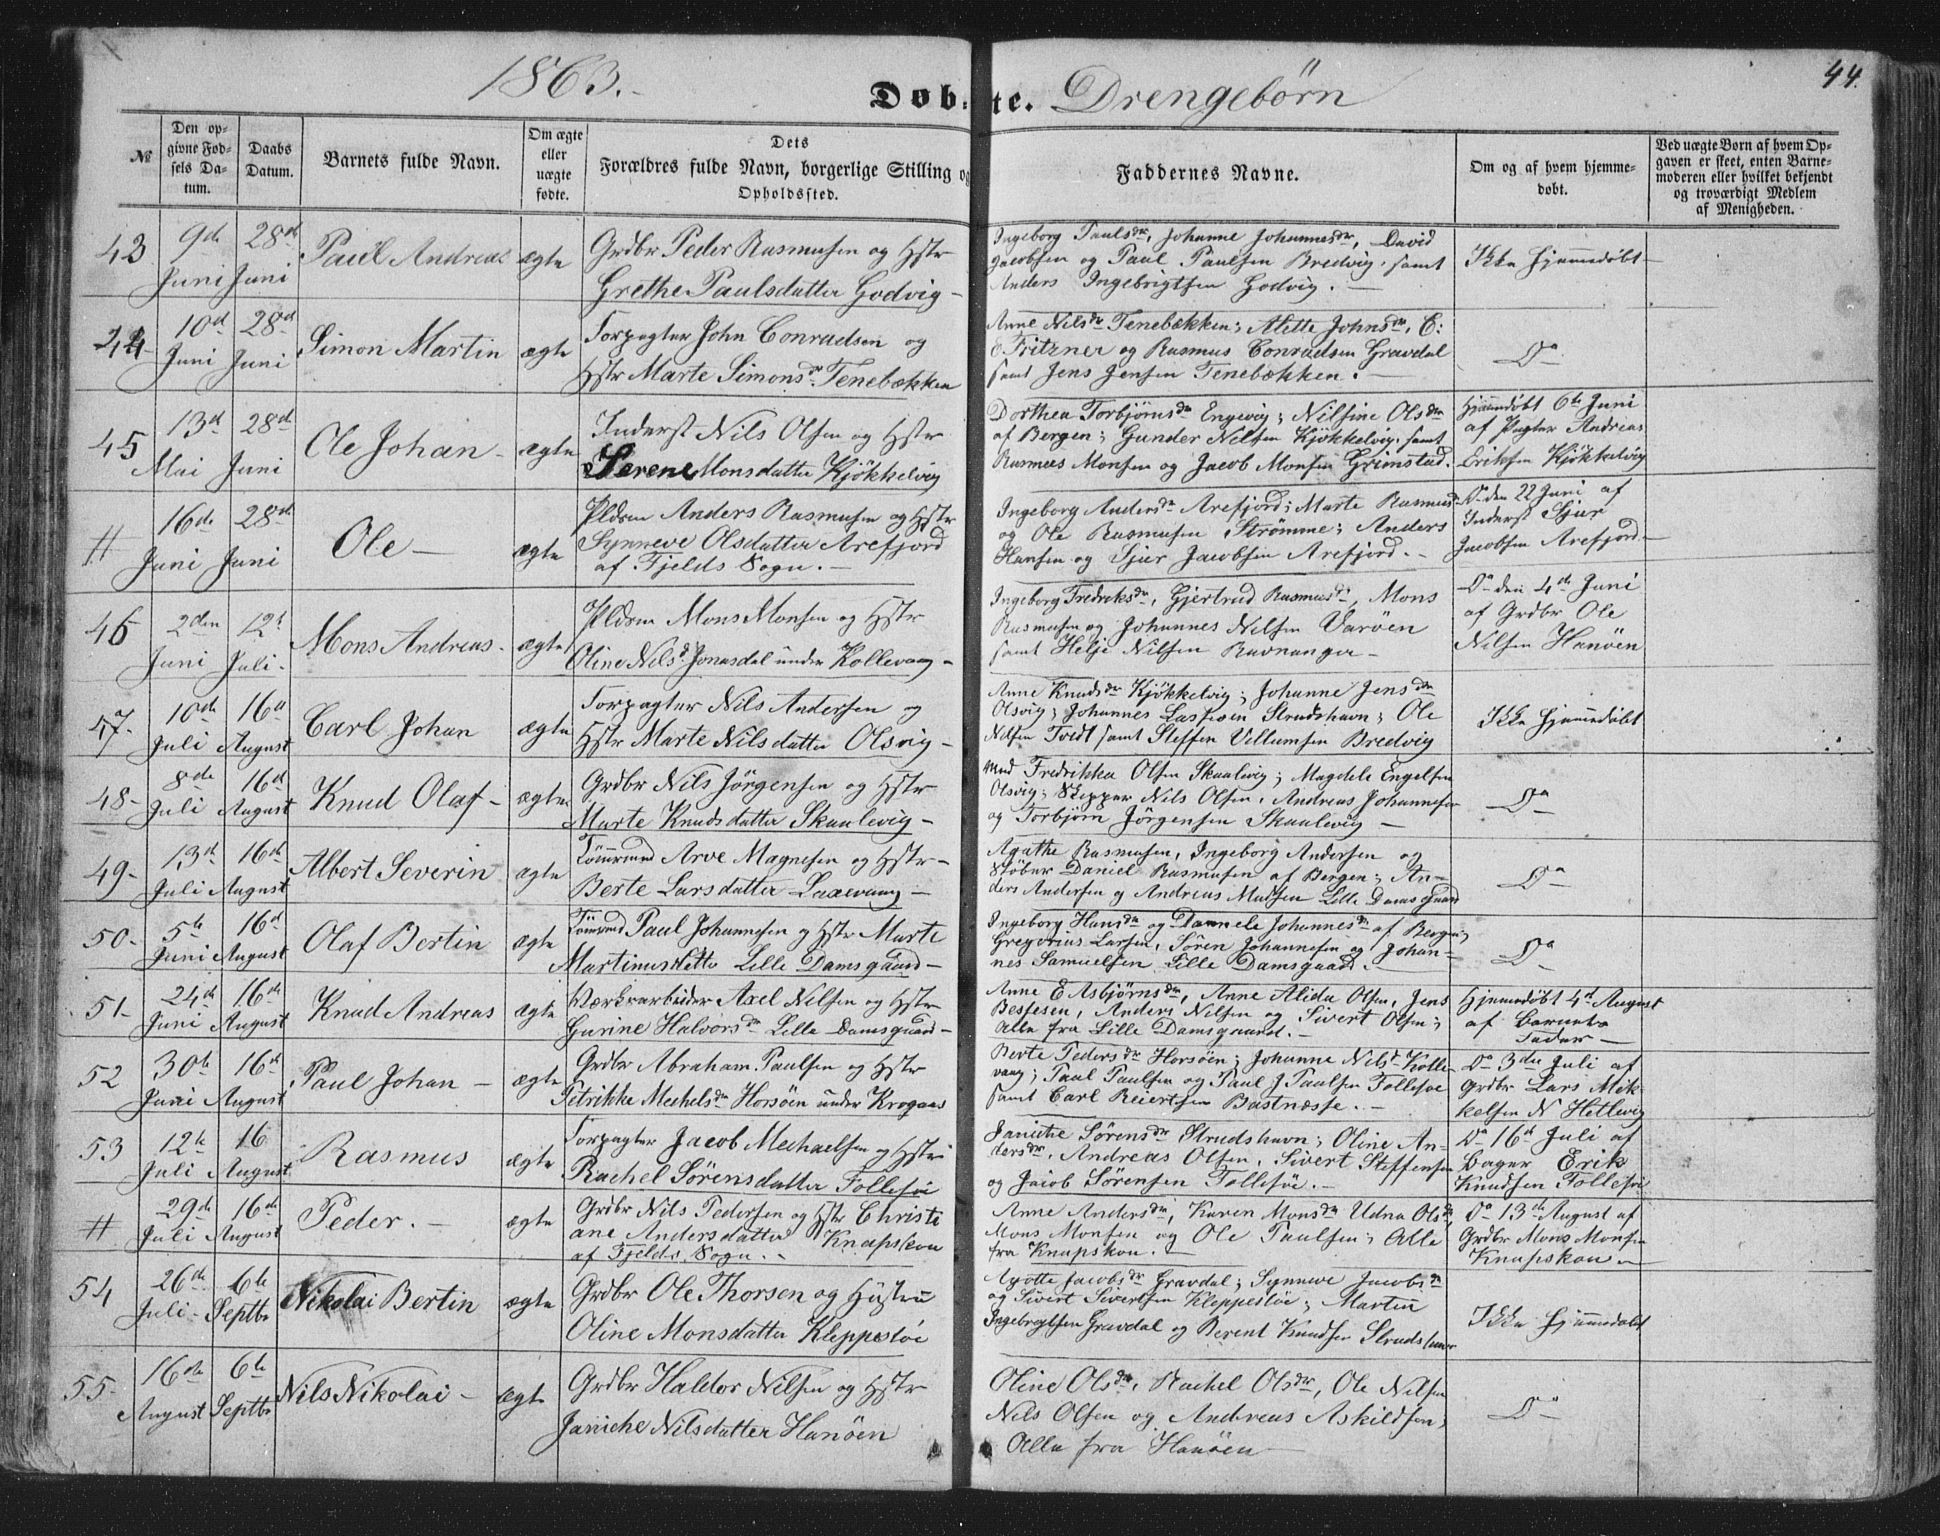 1863.
Døbte. Drengebørn
44.
№
Den opgivne Fødsels Datum.
Daabs Datum.
Barnets fulde Navn.
Om ægte eller uægte fødte.
Dets Forældres fulde Navn, borgerlige Stilling og Opholdssted.
Faddernes Navne.
Om og af hvem hjemmedøbt.
Ved uægte Børn af hvem Opgaven er skeet, enten Barnemoderen eller hvilket bekjendt og troværdigt Medlem af Menigheden.
43
9de Juni
28de Juni
Paul Andreas
ægte
Grdbr Peder Rasmussen og Hstr
Grethe Paulsdatter Godvig
Ingeborg Paulsdr, Johanne Johannesdr, David
Jacobsen og Paul Paulsen Bredvig samt
Anders Ingebrigtsen Godvig.
Ikke hjemmedøbt
44
10d Juni
28de Juni
Simon Martin
ægte
Forpagter John Conradsen og
Hstr Marte Simonsdr Tenebækken
Anne Nilsdr Tenebækken; Alette Johnsdr, C:
Fritzner og Rasmus Conradsen Gravdal
samt Jens Jensen Tenebækken.
Do
45
13d Mai
28de Juni
Ole Johan
ægte
Inderst Nils Olsen og Hstr
Serene Monsdatter Kjökkelvig
Dorthea Torbjörnsdr Engevig; Nilsine Olsdr
af Bergen; Gunder Nilsen Kjökkelvig samt
Rasmus Monsen og Jacob Monsen Grimstad.
Hjemmedøbt 6te Juni
af Pagter Andreas
Eriksen Kjökkelvig
"
16de Juni
28de Juni
Ole
ægte
Pldsm Anders Rasmussen og Hstr
Synneve Olsdatter Arefjord
af Fjelds Sogn.
Ingeborg Andersdr Arefjord; Marte Rasmusdr
og Ole Rasmussen Strömme; Anders
Hansen og Sjur Jacobsen Arefjord.
Do den 22 Juni af
Inderst Sjur
Jacobsen Arefjord
46
2den Juni
12te Juli
Mons Andreas
ægte
Pldsm Mons Monsen og Hstr
Oline Nilsd. Jonasdal under Kollevaag
Ingeborg Fredriksdr, Gjertrud Rasmusdr, Mons
Rasmusen og Johannes Nilsen Varöen
samt Helje Nilsen Ravnanger
Do den 4de Juni
af Grdbr Ole
Nilsen Hanöen
47
10de Juli
16d August
Carl Johan
ægte
Forpagter Nils Andersen og
Hstr Marte Nilsdatter Olsvig
Anne Knudsdr Kjökkelvig; Johanne Jensdr
Olsvig; Johannes Lassesen Strudshavn; Ole
Nilsen Tvedt samt Steffen Villumsen Bredvig
Ikke hjemmedøbt
48
8de Juli
16d August
Knud Olaf
ægte
Grdbr Nils Jörgensen og Hstr
Marte Knudsdatter Skaalevig
Mad Fredrikke Olsen Skaalevig; Magdele Engelsen
Olsvig; Skipper Nils Olsen, Andreas Johannesen
og Torbjörn Jörgensen Skaalevig
Do
49
13d Juli
16de August
Albert Severin
ægte
Tömmermd Arve Magnesen og Hstr
Berte Larsdatter Laxevaag
Agathe Rasmusen, Ingeborg Andersen og
Støber Daniel Rasmusen af Bergen; An-
ders Andersen og Andreas Madsen Lille Damsgaard
Do
50
5te Juni
16d August
Olaf Bertin
ægte
Tömrmd Paul Johannesen og Hstr Marte
Martinusdatter Lille Damsgaard
Ingeborg Hansdr og Dannele Johannesdr af Bergen;
Gregorius Larsen, Sören Johannesen og Johan-
nes Samuelsen Lille Damsgaard.
Do
51
24de Juni
16de August
Knud Andreas
ægte
Værksarbeider Axel Nilsen og Hstr
Gurine Halvorsdr Lille Damsgaard
Anne E Asbjörnsdr, Anne Alida Olsen, Jens
Bestesen, Anders Nilsen og Sivert Olsen;
Alle fra Lille Damsgaard.
Hjemmedøbt 4de August
af Barnets
Fader
52
30te Juni
16de August
Paul Johan
ægte
Grdbr Abraham Paulsen og Hstr
Petrikke Mechelsdr Horsöen under Krogaas
Berte Pedersdr Horsöen; Johanne Nilsd Kolle-
vaag; Paul Paulsen og Paul J Paulsen Follesöe
samt Carl Reiertsen Bastnæsse.
Do 3die Juli af
Grdbr Lars Mik-
kelsen N Hetlevig
53
12te Juli
16 August
Rasmus
ægte
Forpagter Jacob Mechaelsen og Hstr
Rachel Sörensdatter Follesöe
Janiche Sörensdr Strudshavn; Oline An-
dersdr, Andreas Olsen, Sivert Steffensen
og Jacob Sörensen Follesöe.
Do 16d Juli af
Bager Erik
Knudsen Follesöe
"
29de Juli
16de August
Peder.
ægte
Grdbr Nils Pedersen og Hstr Christi
ane Andersdatter Knapskou
af Fjelds Sogn.
Anne Andersdr, Karen Monsdr Udna Olsdr
Mons Monsen og Ole Paulsen; Alle
fra Knapskou.
Do 13de August af
Grdbr Mons Monsen
Knapskou
54
26de Juli
6te Septbr
Nikolai Bertin
ægte
Grdbr Ole Thorsen og Hustru
Oline Monsdatter Kleppestöe
Agotte Jacobsdr Gravdal; Synneve Jacobsdr
og Sivert Sivertsen Kleppestöe; Martin
Ingebrigtsen Gravdal og Berent Knudsen Strudshavn
Ikke hjemmedøbt
55
16de August
6te Septbr
Nils Nikolai
ægte
Grdbr Haldor Nilsen og Hstr
Janiche Nilsdatter Hanöen
Oline Olsdr, Rachel Olsdr, Ole Nilsen
Nils Olsen og Andreas Askildsen;
Alle fra Hanöen
Do